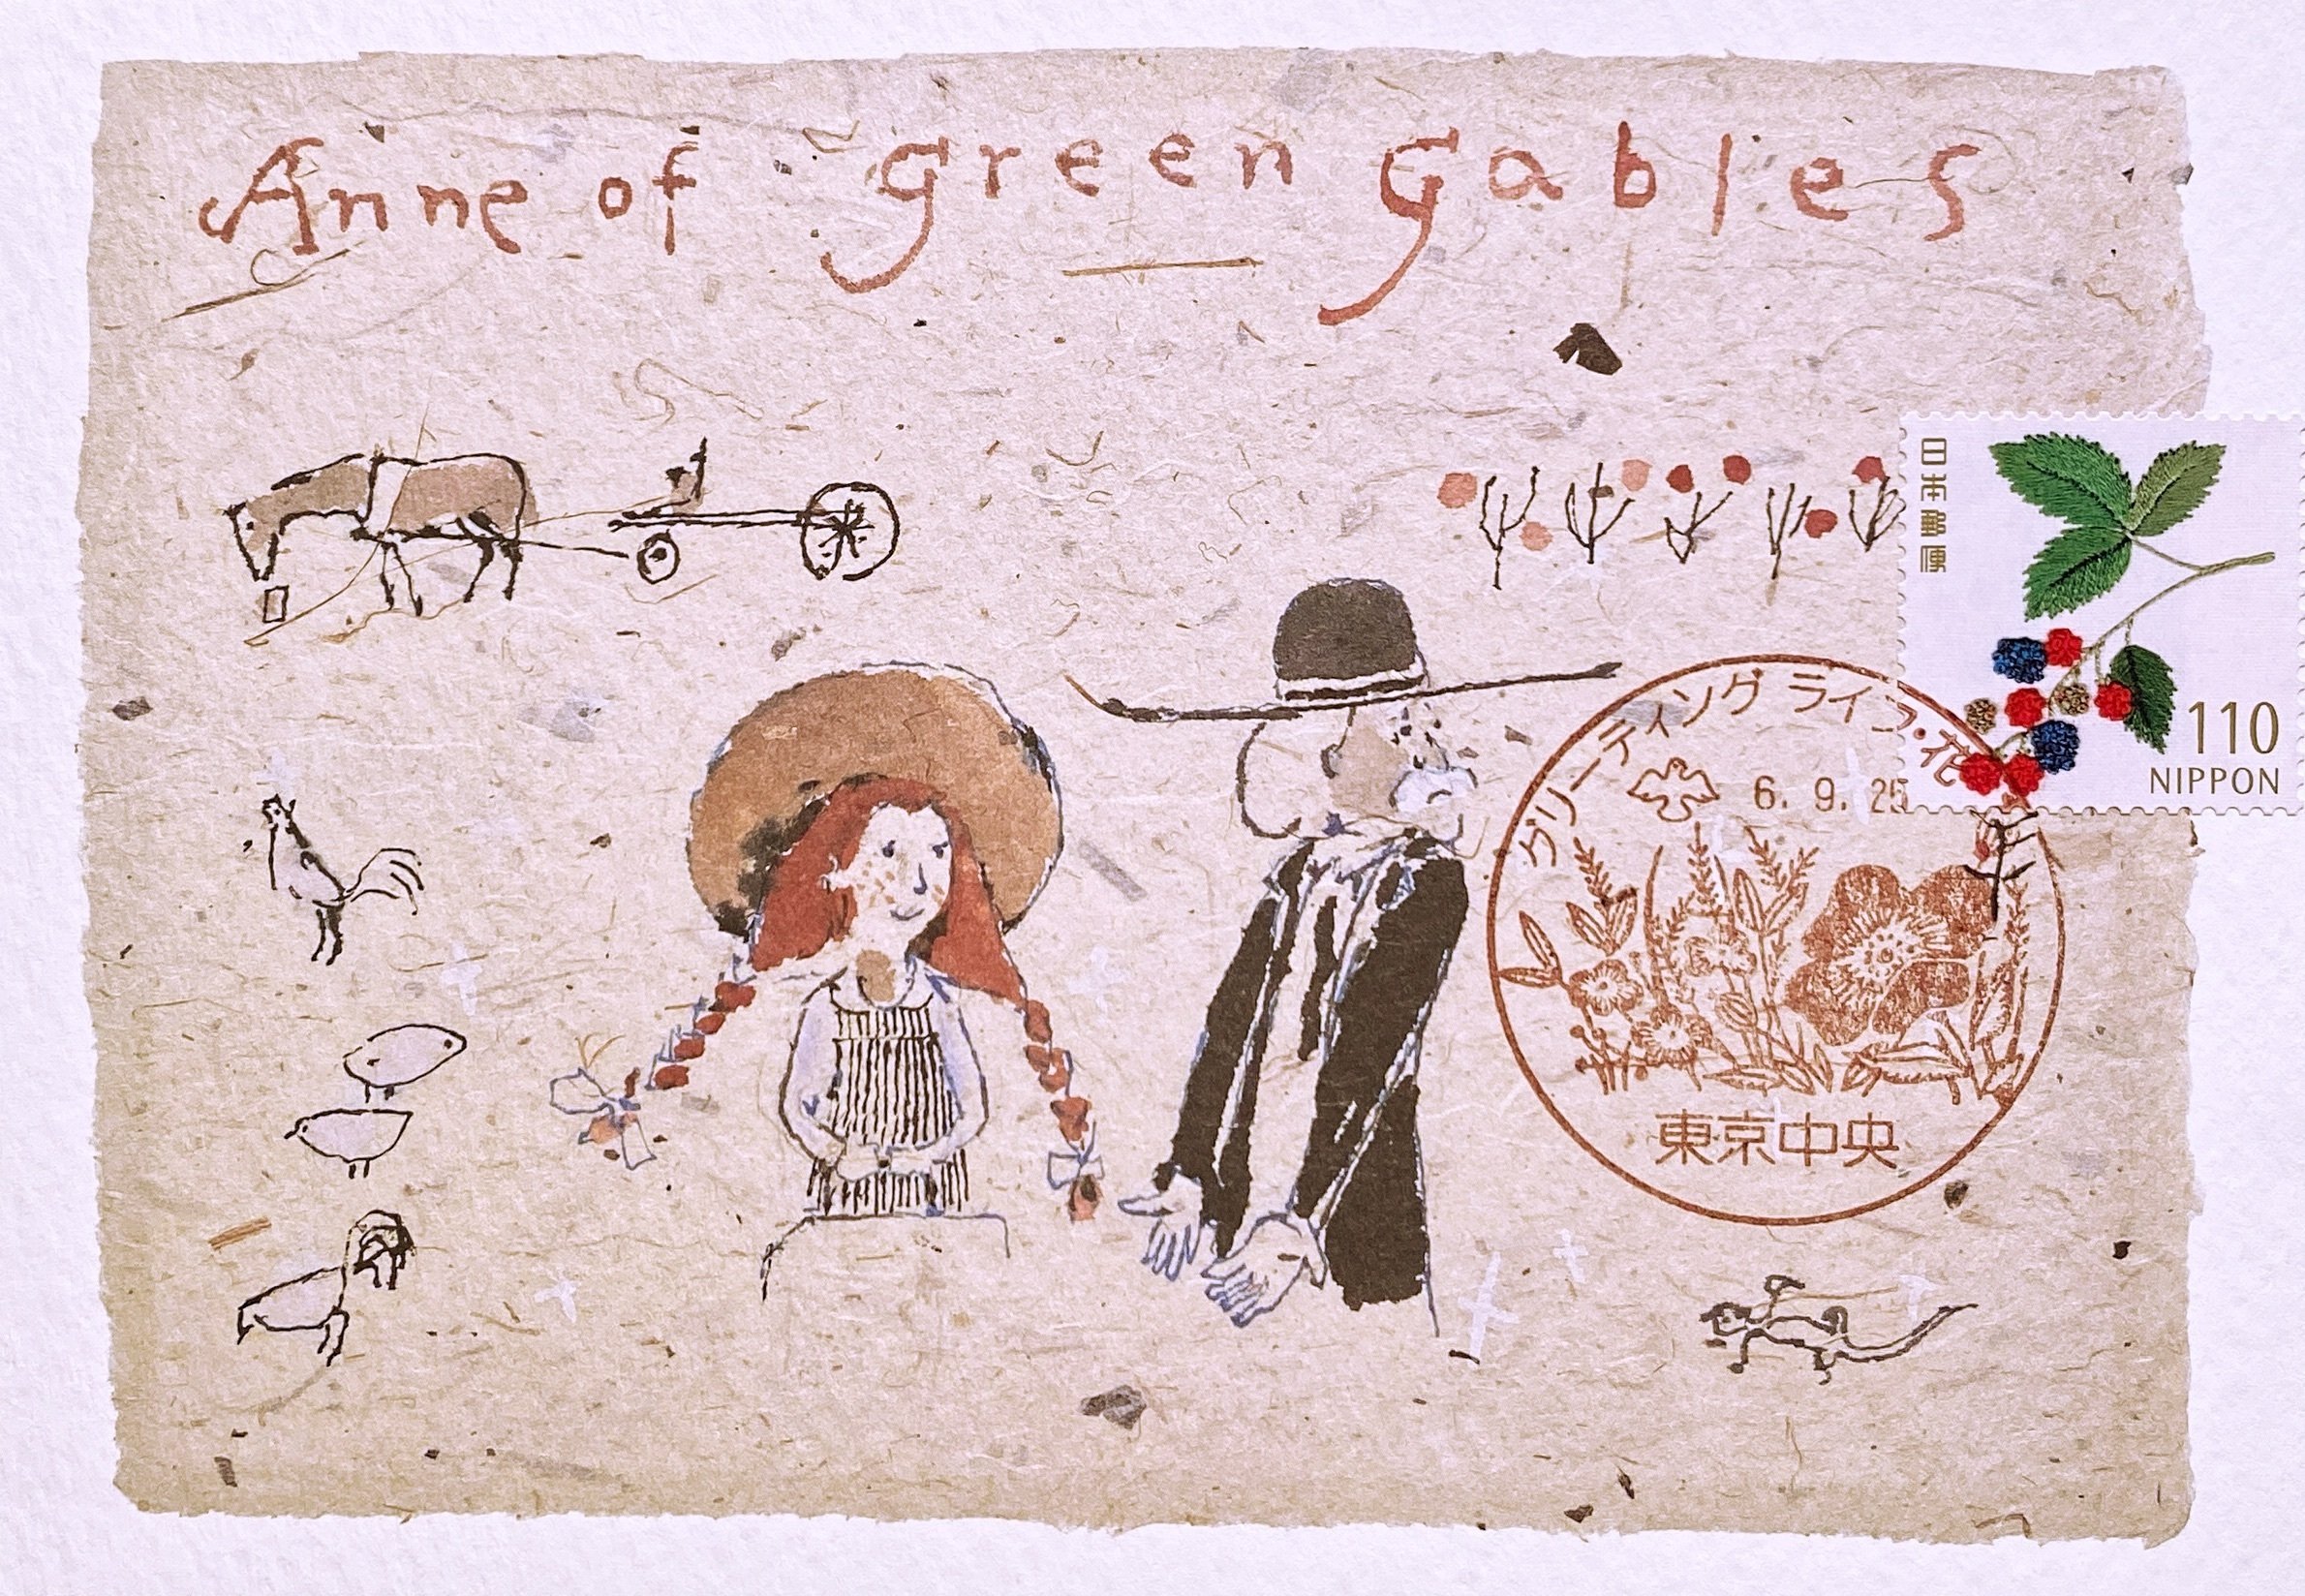 Anne of Green Gables
日本郵便
110
NIPPON
グリーティング ライフ・花
6. 9. 25
東京中央